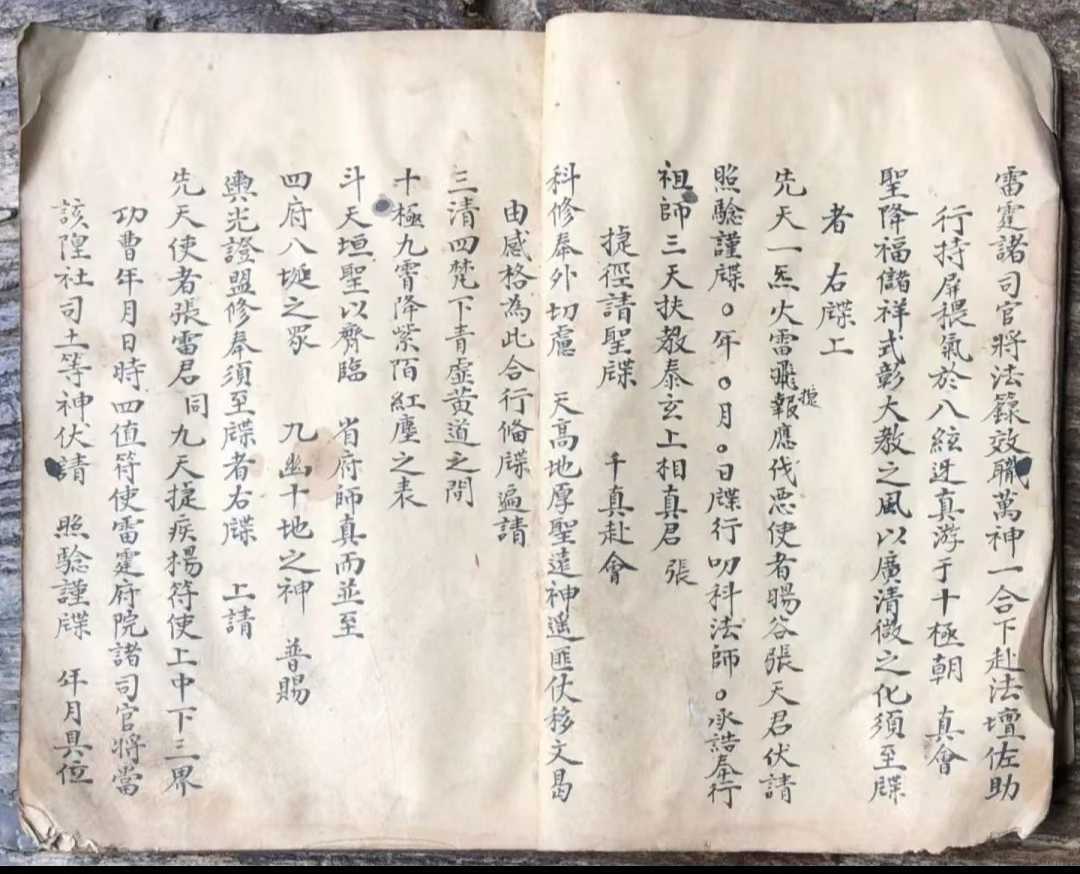 雷霆諸司官將法籙效職萬神一合下赴法壇佐助
行持屏穢氣於八紘迓真游于十極朝　真會
聖降福儲祥式彰大教之風以廣清微之化須至牒
者　右牒上
先天一炁火雷飛捷報應伐惡使者暘谷張天君伏請
照驗謹牒○年○月○日牒行叨科法師○承誥奉行
祖師三天扶教泰玄上相真君　張
捷徑請聖牒　　千真赴會
科修奉外切慮　天高地厚聖遠神遙匪仗移文曷
由感格為此合行備牒遍請
三清四梵下青虛黃道之間
十極九霄降紫陌紅塵之表
斗天垣聖以齊臨　省府師真而並至
四府八埏之眾　　九幽十地之神　普賜
輿光證盟修奉須至牒者右牒　上請
先天使者張雷君同九天捷疾楊符使上中下三界
功曹年月日時四值符使雷霆府院諸司官將當
該隍社司土等神伏請　照驗謹牒　年月具位